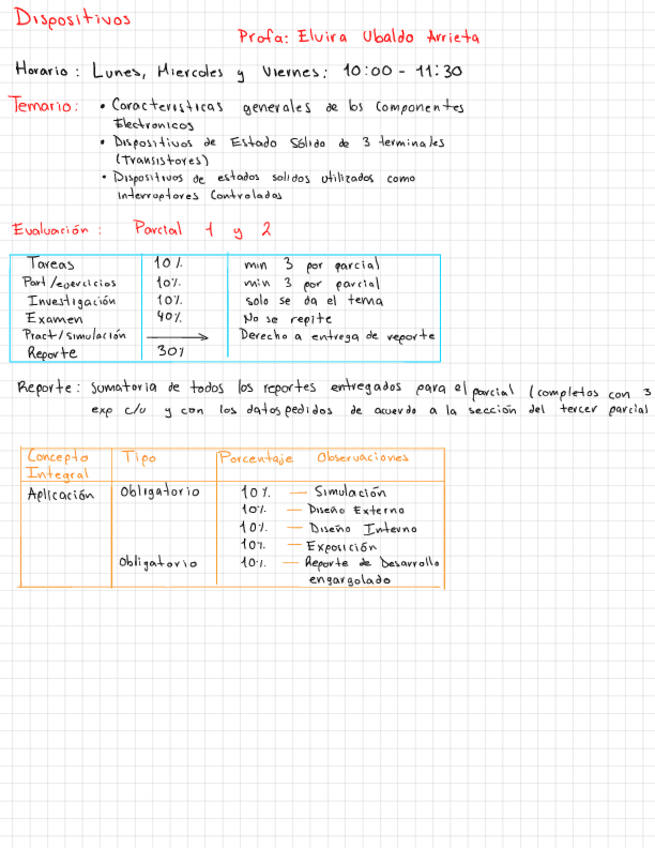 Dispositivos
Profa: Elvira Ubaldo Arrieta
Horario: Lunes, Miercoles y Viernes: 10:00 - 11:30
Temario: • Caracteristicas generales de los componentes
Electronicos
• Dispositivos de Estado Sólido de 3 terminales
(Transistores)
• Dispositivos de estados solidos utilizados como
interruptores controlados
Evaluación: Parcial 1 y 2
Tareas 10% min 3 por parcial
Part/ejercicios 10% min 3 por parcial
Investigación 10% solo se da el tema
Examen 40% No se repite
Pract/simulación → Derecho a entrega de reporte
Reporte 30%
Reporte: Sumatoria de todos los reportes entregados para el parcial (completos con 3
exp c/u y con los datos pedidos de acuerdo a la sección del tercer parcial
Concepto Tipo Porcentaje Observaciones
Integral
Aplicación Obligatorio 10% — Simulación
10% — Diseño Externo
10% — Diseño Interno
10% — Exposición
Obligatorio 10% — Reporte de Desarrollo
engargolado